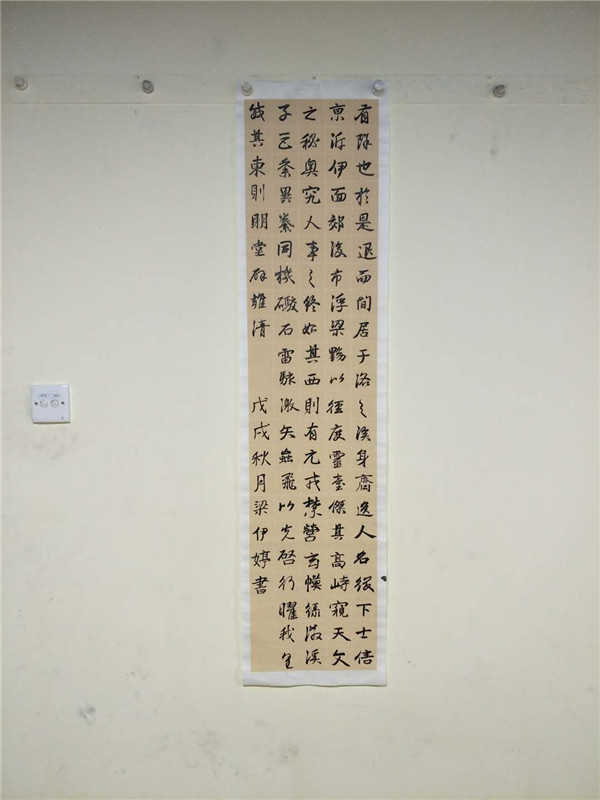 有餘也於是退而閒居于洛之涘身齊逸人名綴下士倍
京泝伊面郊後市浮梁黝以徑度靈臺傑其高峙窺天文
之秘奧究人事之終始其西則有元戎禁營玄幙綠徽溪
子巨黍異絭同機礮石雷駭激矢虻飛以先啓行曜我皇
威其東則明堂辟雍清 戊戌秋月梁伊婷書